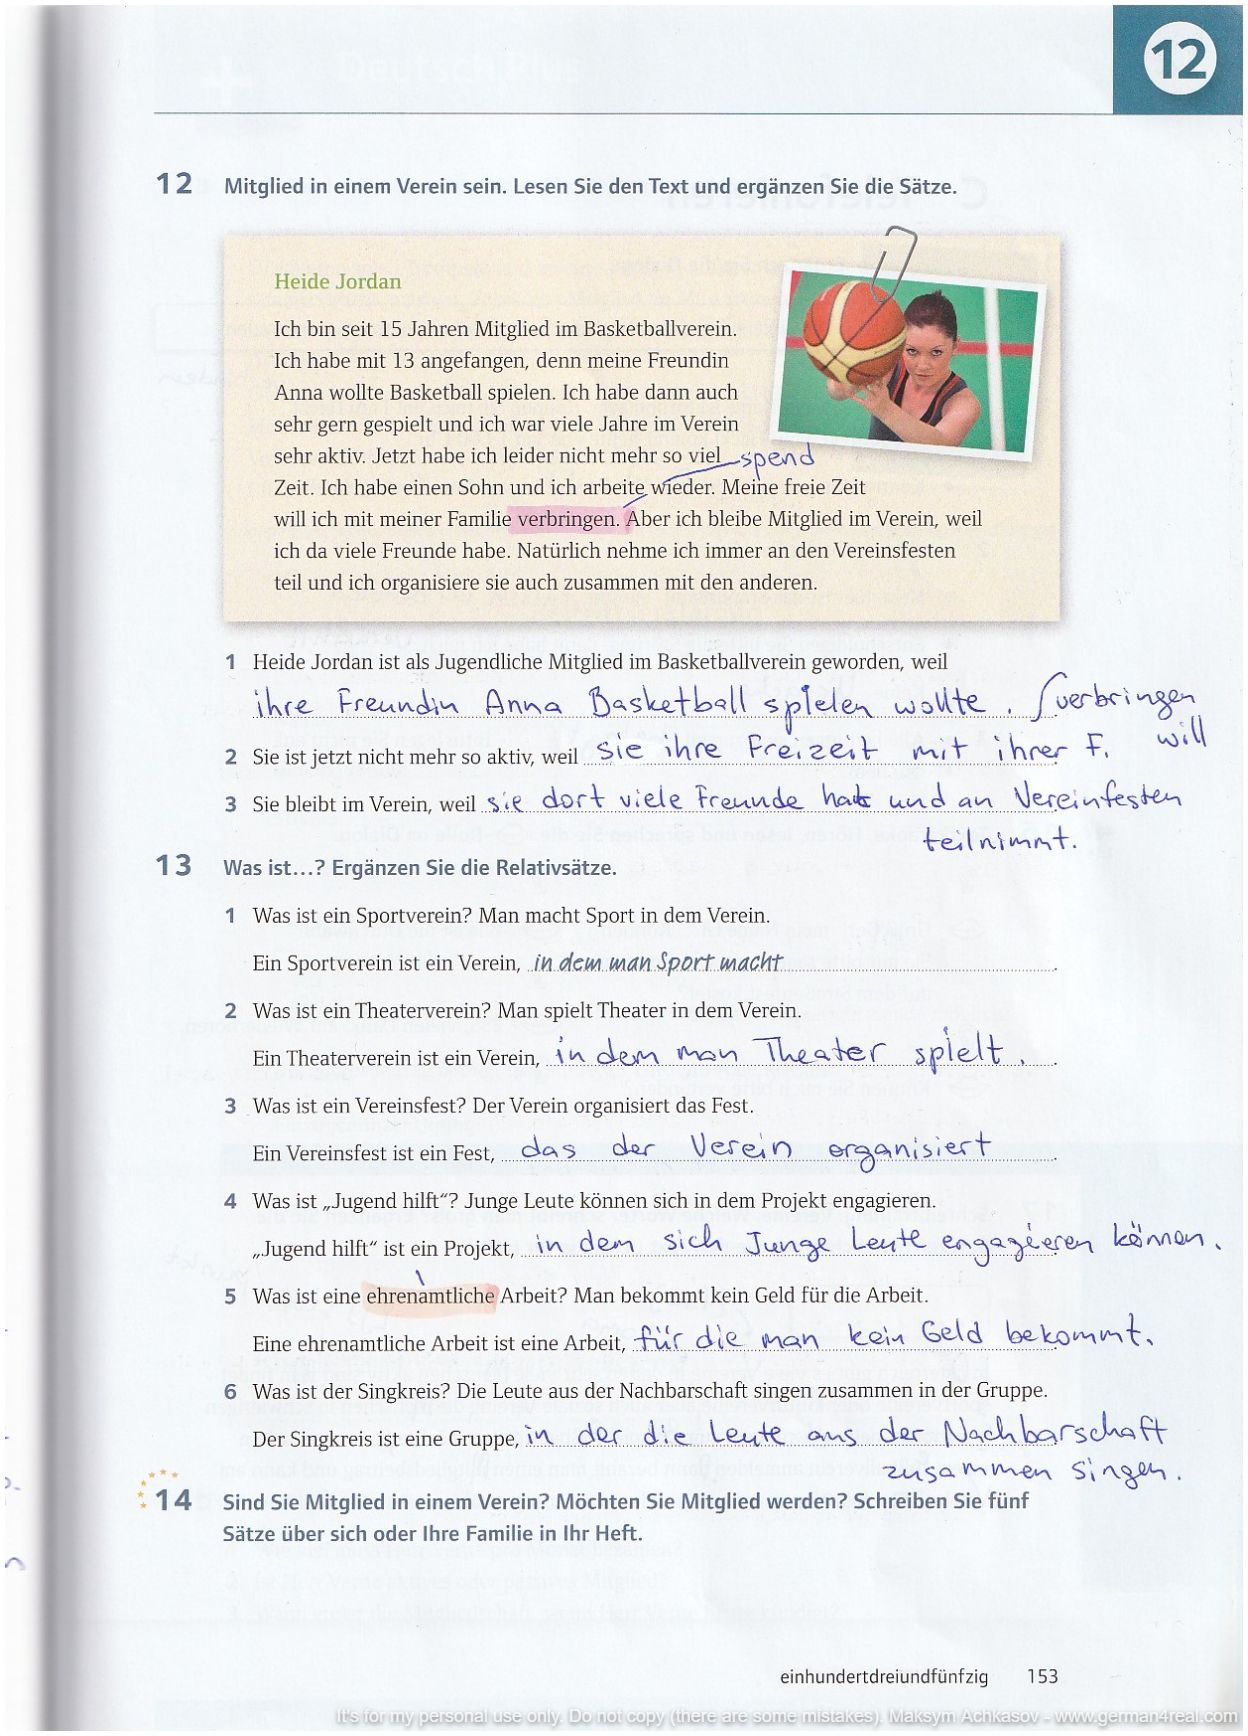 12
12 Mitglied in einem Verein sein. Lesen Sie den Text und ergänzen Sie die Sätze.
Heide Jordan
Ich bin seit 15 Jahren Mitglied im Basketballverein.
Ich habe mit 13 angefangen, denn meine Freundin
Anna wollte Basketball spielen. Ich habe dann auch
sehr gern gespielt und ich war viele Jahre im Verein
sehr aktiv. Jetzt habe ich leider nicht mehr so viel
spend
Zeit. Ich habe einen Sohn und ich arbeite wieder. Meine freie Zeit
will ich mit meiner Familie verbringen. Aber ich bleibe Mitglied im Verein, weil
ich da viele Freunde habe. Natürlich nehme ich immer an den Vereinsfesten
teil und ich organisiere sie auch zusammen mit den anderen.
1 Heide Jordan ist als Jugendliche Mitglied im Basketballverein geworden, weil
ihre Freundin Anna Basketball spielen wollte.
verbringen
will
2 Sie ist jetzt nicht mehr so aktiv, weil sie ihre Freizeit mit ihrer F.
3 Sie bleibt im Verein, weil sie dort viele Freunde hat und an Vereinfesten
teilnimmt.
13 Was ist...? Ergänzen Sie die Relativsätze.
1 Was ist ein Sportverein? Man macht Sport in dem Verein.
Ein Sportverein ist ein Verein, in dem man Sport macht.
2 Was ist ein Theaterverein? Man spielt Theater in dem Verein.
Ein Theaterverein ist ein Verein, in dem man Theater spielt.
3 Was ist ein Vereinsfest? Der Verein organisiert das Fest.
Ein Vereinsfest ist ein Fest, das der Verein organisiert.
4 Was ist „Jugend hilft“? Junge Leute können sich in dem Projekt engagieren.
„Jugend hilft“ ist ein Projekt, in dem sich Junge Leute engagieren können.
5 Was ist eine ehrenamtliche Arbeit? Man bekommt kein Geld für die Arbeit.
Eine ehrenamtliche Arbeit ist eine Arbeit, für die man kein Geld bekommt.
6 Was ist der Singkreis? Die Leute aus der Nachbarschaft singen zusammen in der Gruppe.
Der Singkreis ist eine Gruppe, in der die Leute aus der Nachbarschaft
zusammen singen.
14 Sind Sie Mitglied in einem Verein? Möchten Sie Mitglied werden? Schreiben Sie fünf
Sätze über sich oder Ihre Familie in Ihr Heft.
einhundertdreiundfünfzig 153
It's for my personal use only. Do not copy (there are some mistakes). Maksym Achkasov - www.german4real.com